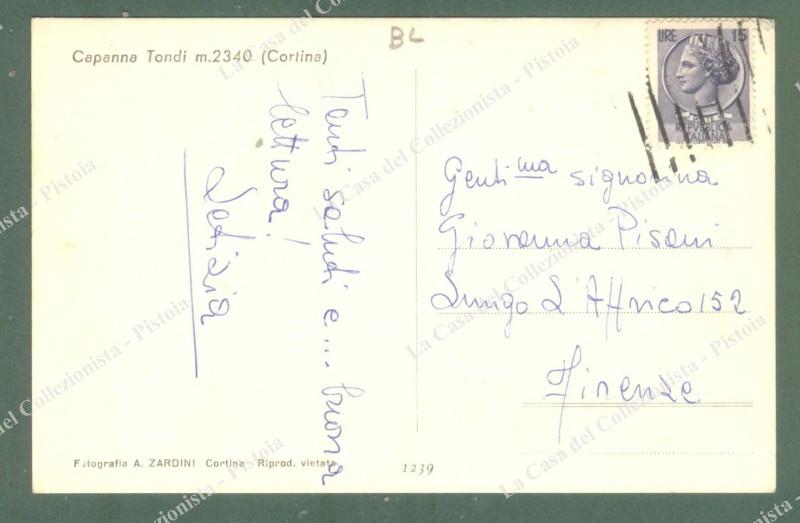 BL
Capanna Tondi m.2340 (Cortina)
LIRE 15
REPVBBLICA
ITALIANA
Tanti saluti e... buona
lettura!
Letizia
Gentima signorina
Giovanna Pisani
Lungo L'Affrico 152
Firenze
Fotografia A. ZARDINI Cortina - Riprod. vietata
1239
La Casa del Collezionista - Pistoia